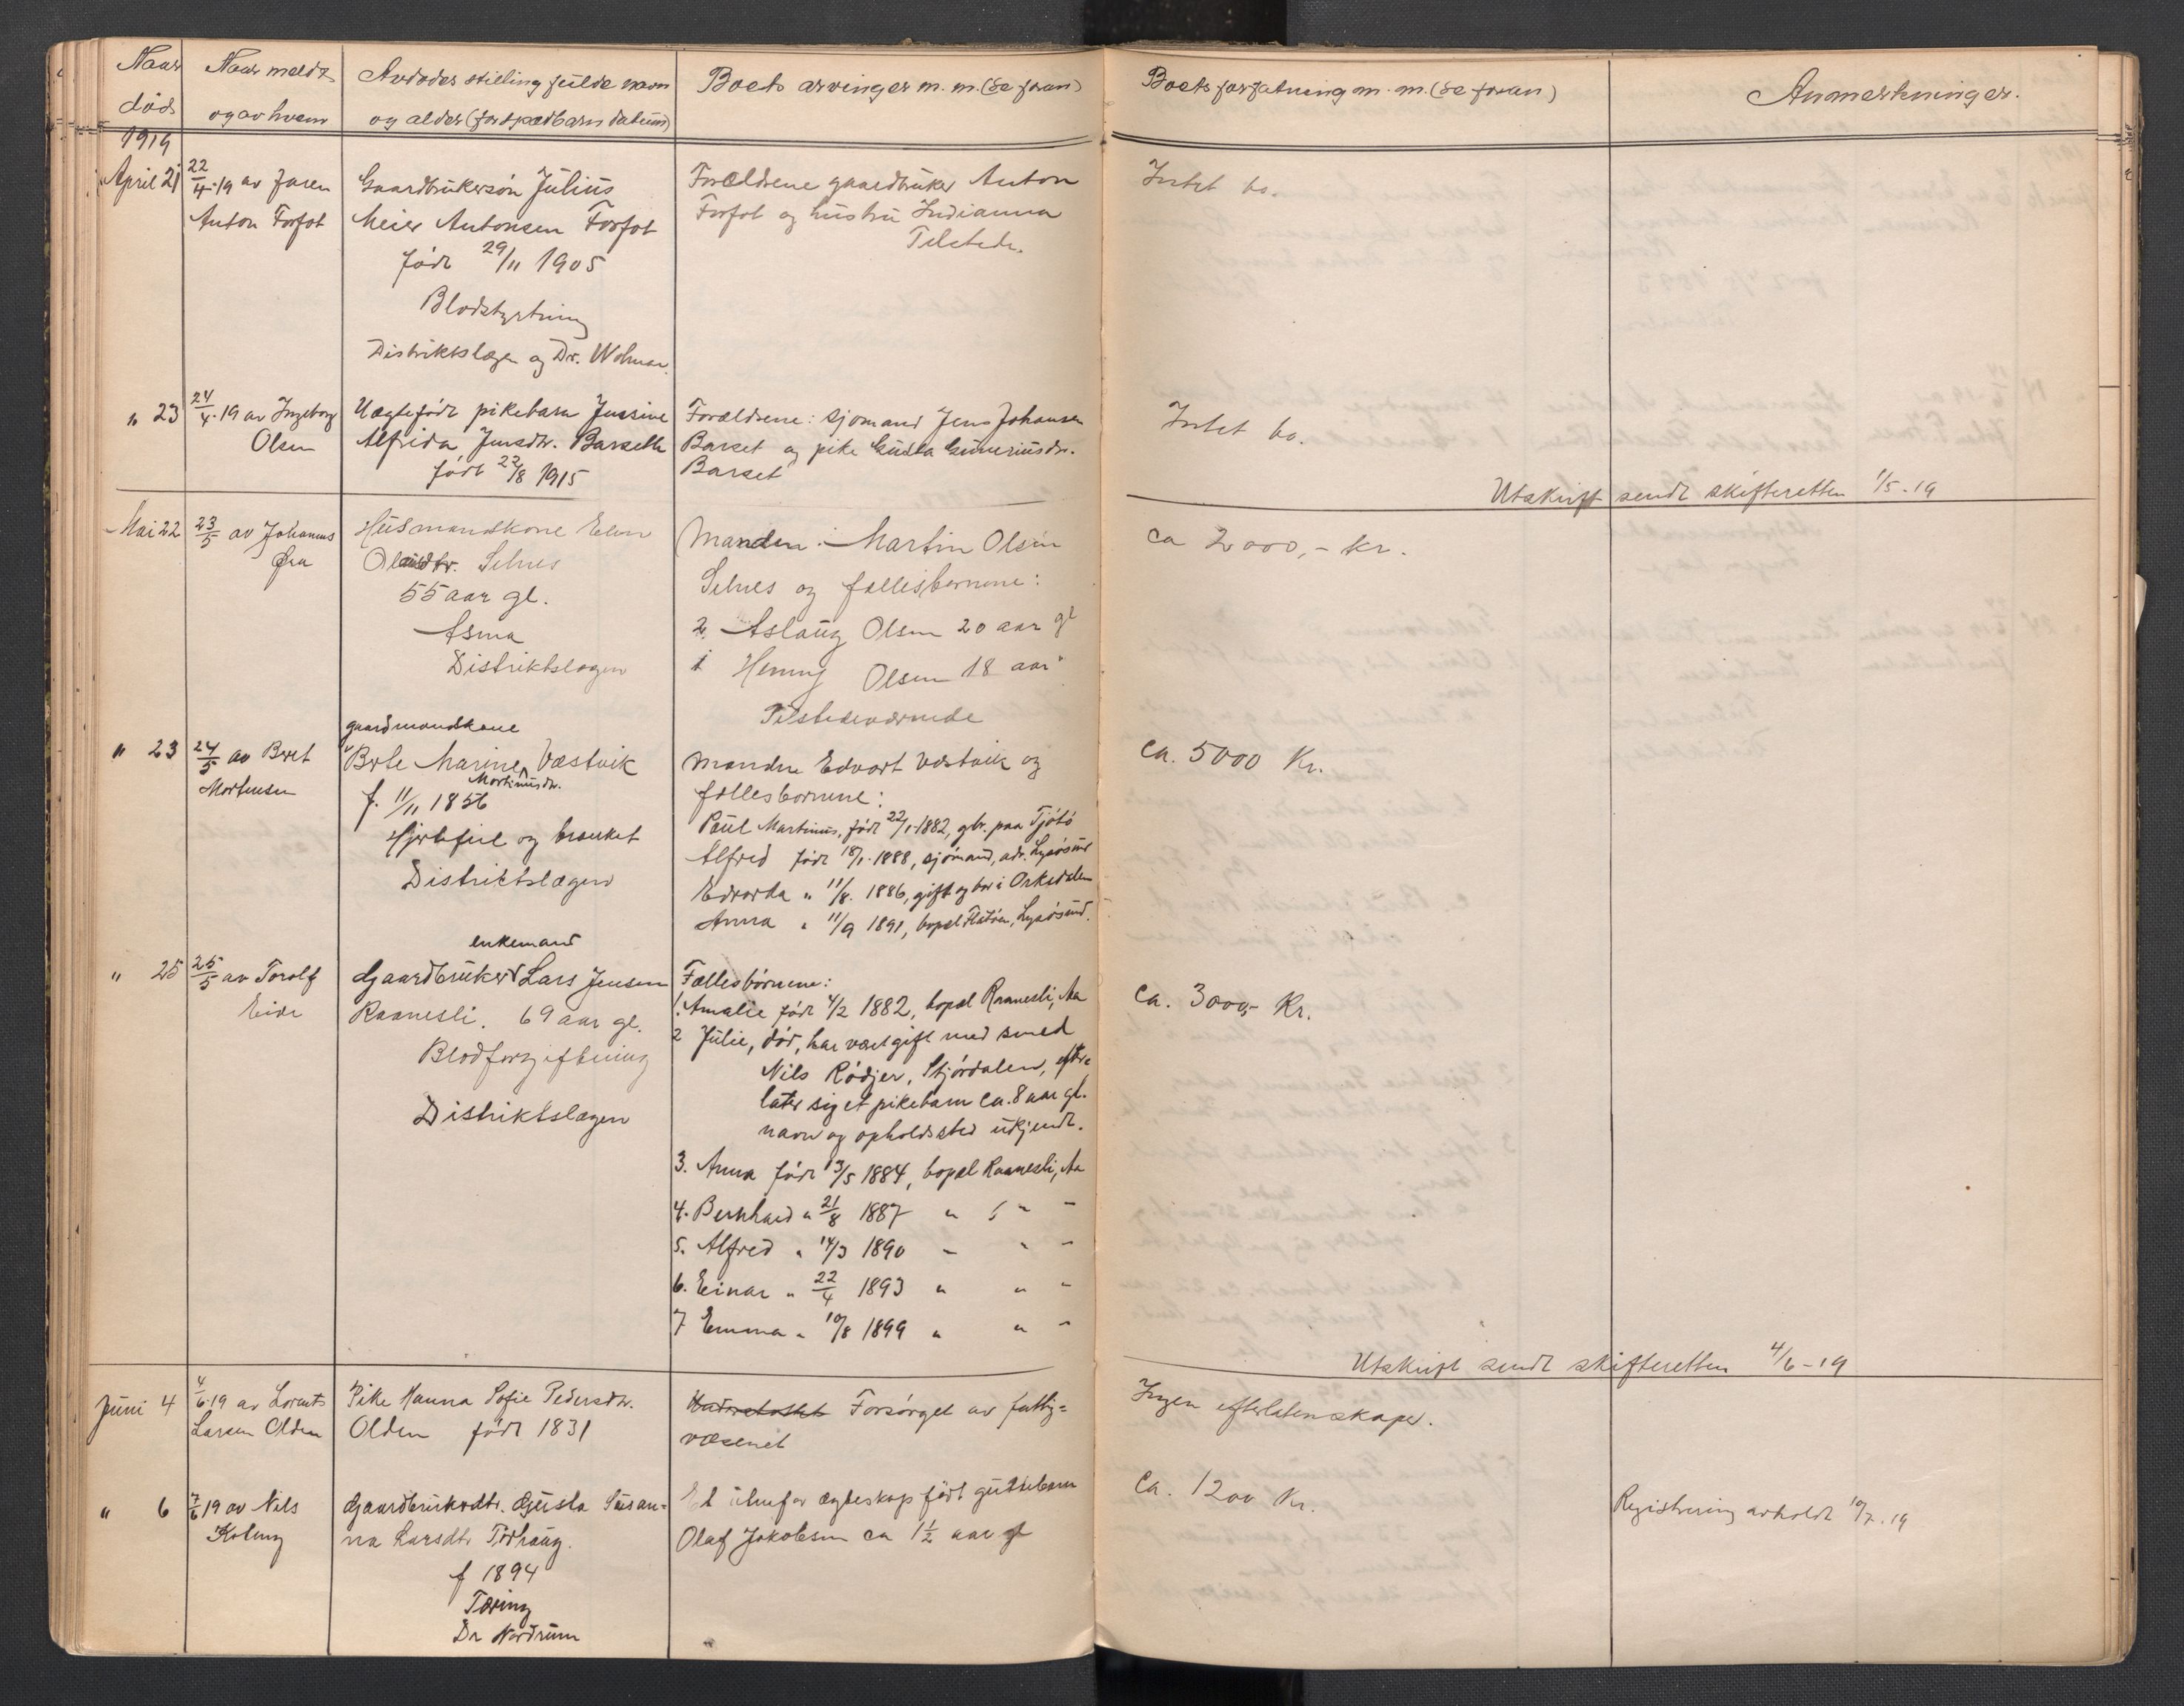 Naar
død
Naar meldt
og av hvem
Avdødes stilling fulde navn
og alder (for spædbarn datum)
Boets arvinger m. m. (Se foran)
Boets forfatning m. m. (Se foran)
Anmerkninger.
1919
April 21
22/4-19 av faren
Anton Forfot
Gaardbrukersøn Julius
Meier Antonsen Forfot
født 29/11 1905
Blodstyrtning
Distriktslægen og Dr.
Forældrene gaardbruker Anton
Forfot og hustru Indianna
Tilstede.
Intet bo.
" 23
24/4-19 av Ingeborg
Olsen
Uægtefødt pikebarn Jensine
Alfrida Jensdtr. Barseth
født 22/8 1915
Forældrene: sjømand Jens Johansen
Barset og pike
Barset
Intet bo.
Utskrift sendt skifteretten 1/5-19
Mai 22
23/5 av Johannes
Øra
Husmandkone Elen
Olausdtr. Selnes
55 aar gl.
Asma
Distriktslægen
Manden: Martin Olsen
Selnes og fællesbørnene:
2. Aslaug Olsen 20 aar gl
1 Henny Olsen 18 aar "
Tilstedeværende
ca 2000,- kr.
" 23
24/5 av Beret
Mortensen
gaardmandskone
Brte Marine Væstvik
Martinusdtr.
f. 11/11 1856
Hjertefeil og brækket
Distriktslægen
Manden Edvart Væstvik og
fællesbørnene:
Paul Martinus, født 22/1-1882, gbr. paa Tjøtø
Alfred født 18/1-1888, sjømand, adr. Lysøsund
Edvarda " 11/8. 1886, gift og bor i Orkedalen
Anna " 11/9 1891, bopæl Flatøen, Lysøsund.
ca. 5000 Kr.
" 25
25/5 av Torolf
Eide
enkemand
Gaardbruker Lars Jensen
Raanesli. 69 aar gl.
Blodforgiftning
Distriktslægen
Fællesbørnene:
1. Amalie født 4/2 1882, bopæl Raanesli, Aa
2 Julie, død, har vært gift med smed
Nils Rødjer, Stjørdalen, efter-
later sig et pikebarn ca. 8 aar gl.
navn og opholdssted ukjendt.
3. Anna født 13/5 1884, bopæl Raanesli, Aa
4. Bernhard " 21/8 1887 " " "
5. Alfred " 14/3 1890 " " "
6. Einar " 22/4 1893 " " "
7 Emma " 10/8 1899 " " "
ca. 3000,- Kr.
Utskrift sendt skifteretten 4/6-19
Juni 4
4/6-19 av Lorents
Larsen Olden
Pike Hanna Sofie Pedersdtr.
Olden født 1831
Forsørget av fattig=
væsenet
Ingen efterlatenskaper.
" 6
7/6 19 av Nils
Kolung
Gaardbrukerdtr. Gusta Susan=
na Larsdtr.
f 1894
Tæring
Dr Nordrum
Et utenfor ægteskap født guttebarn
Olaf Jakobsen ca 1 1/2 aar gl
Ca. 1200 Kr.
Registrering avholdt 10/7-19